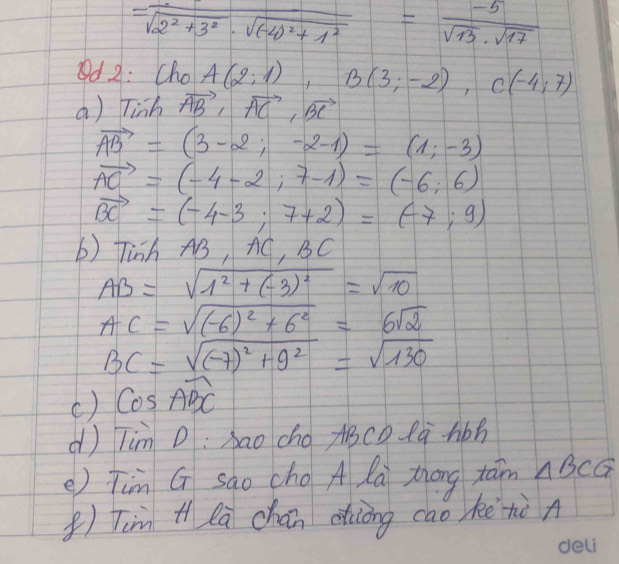 = / √2² + 3² . √(-4)² + 1² = -5 / √13 . √17
Vd 2: Cho A(2; 1) , B(3; -2) , C(-4; 7)
a) Tính AB→, AC→, BC→
AB→ = (3-2; -2-1) = (1; -3)
AC→ = (-4-2; 7-1) = (-6; 6)
BC→ = (-4-3; 7+2) = (-7; 9)
b) Tính AB, AC, BC
AB = √1² + (-3)² = √10
AC = √(-6)² + 6² = 6√2
BC = √(-7)² + 9² = √130
c) Cos ABC
d) Tìm D: sao cho ABCD là hbh
e) Tìm G sao cho A là trọng tâm ΔBCG
f) Tìm H là chân đường cao kẻ từ A
deli